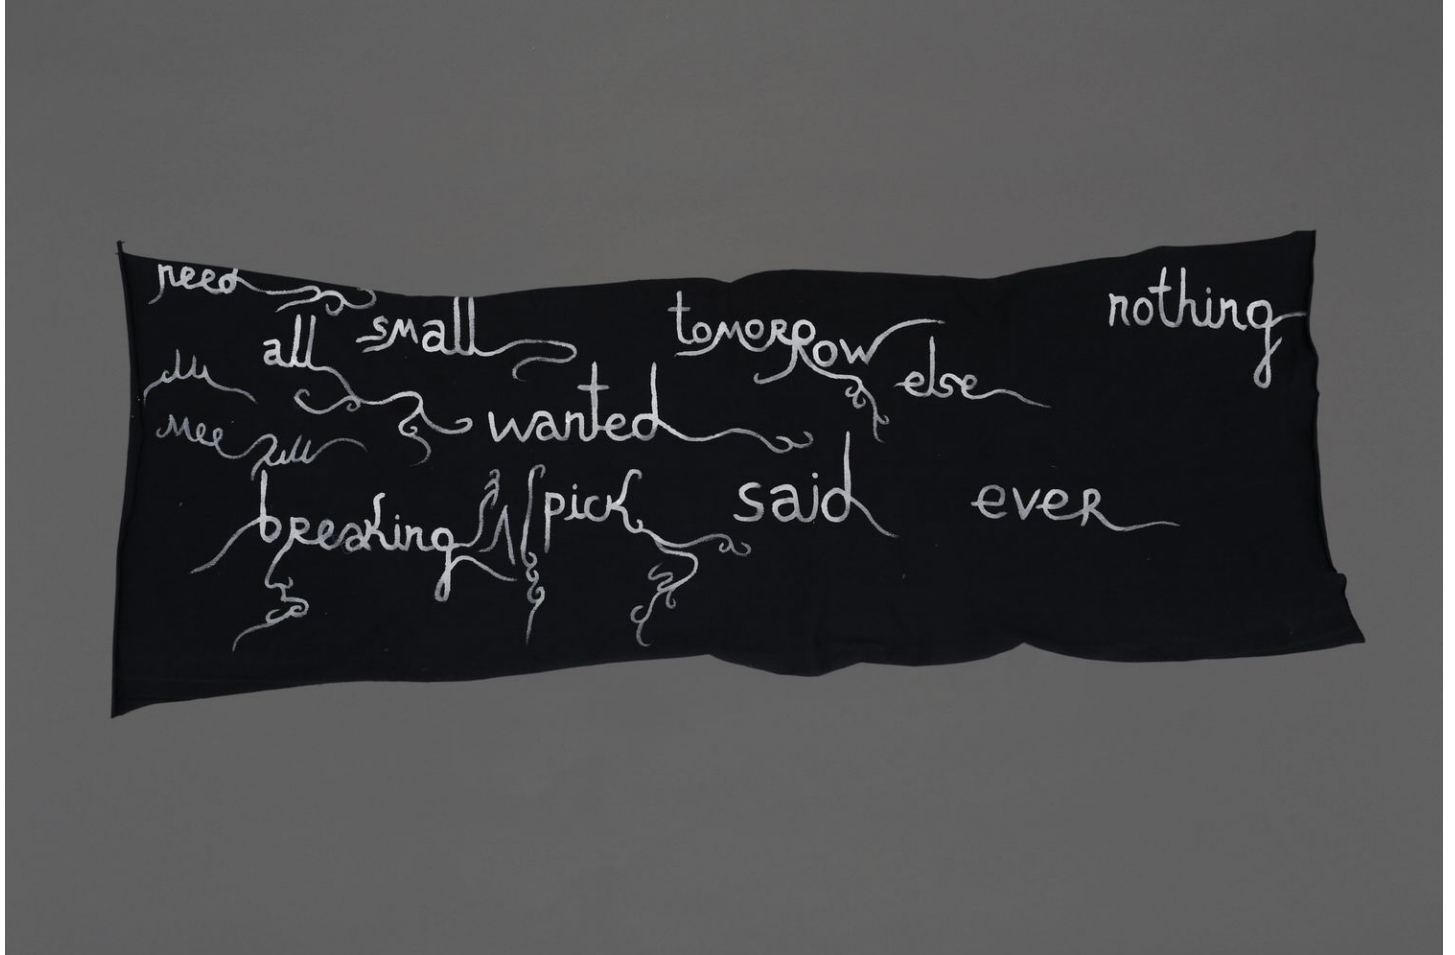 need
all small tomorrow else nothing
wanted
breaking pick said ever